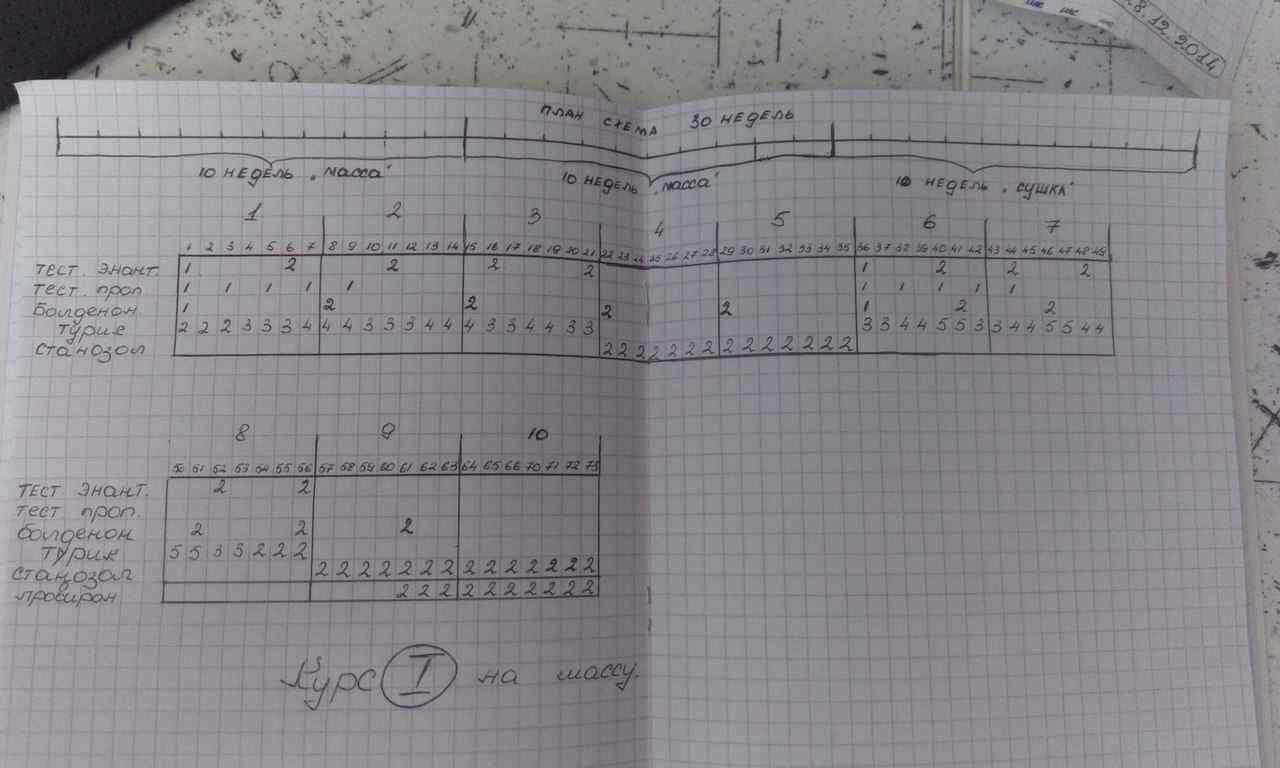 28.12.2014
ПЛАН СХЕМА 30 НЕДЕЛЬ
10 НЕДЕЛЬ „МАССА" 10 НЕДЕЛЬ „МАССА" 10 НЕДЕЛЬ „СУШКА"
1 2 3 4 5 6 7
1 2 3 4 5 6 7 8 9 10 11 12 13 14 15 16 17 18 19 20 21 22 23 24 25 26 27 28 29 30 31 32 33 34 35 36 37 38 39 40 41 42 43 44 45 46 47 48 49
ТЕСТ. ЭНАНТ. 1 2 2 2 2 1 2 2 2
ТЕСТ. ПРОП 1 1 1 1 1 1 1 1 1 1
Болденон 1 2 2 2 2 1 2 2
ТУРИК 2 2 2 3 3 3 4 4 4 3 3 3 4 4 4 3 3 4 4 3 3 3 3 4 4 5 5 3 3 4 4 5 5 4 4
СТАНОЗОЛ 2 2 2 2 2 2 2 2 2 2 2 2 2 2
8 9 10
50 51 52 53 54 55 56 57 58 59 60 61 62 63 64 65 66 70 71 72 73
ТЕСТ ЭНАНТ. 2 2
ТЕСТ ПРОП.
болденон 2 2 2
ТУРИК 5 5 3 3 2 2 2
СТАНОЗОЛ 2 2 2 2 2 2 2 2 2 2 2 2 2 2
провирон 2 2 2 2 2 2 2 2 2 2
Курс I на массу.